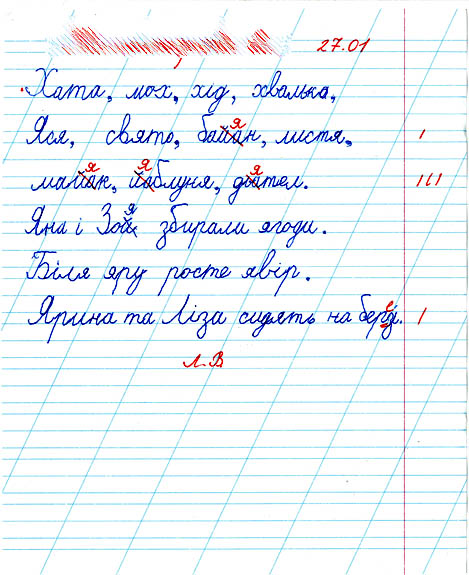 27.01
Хата, мох, хід, хвалька,
Яся, свято, баян, листя, I
маяк, яблуня, дятел. III
Яна і Зоя збирали ягоди.
Біля яру росте явір.
Ярина та Ліза сидять на березі. I
Л.В